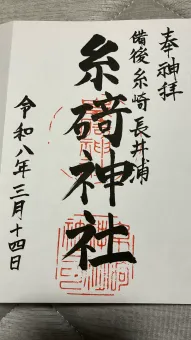 奉神拝
備後糸崎長井浦
糸碕神社
令和八年三月十四日